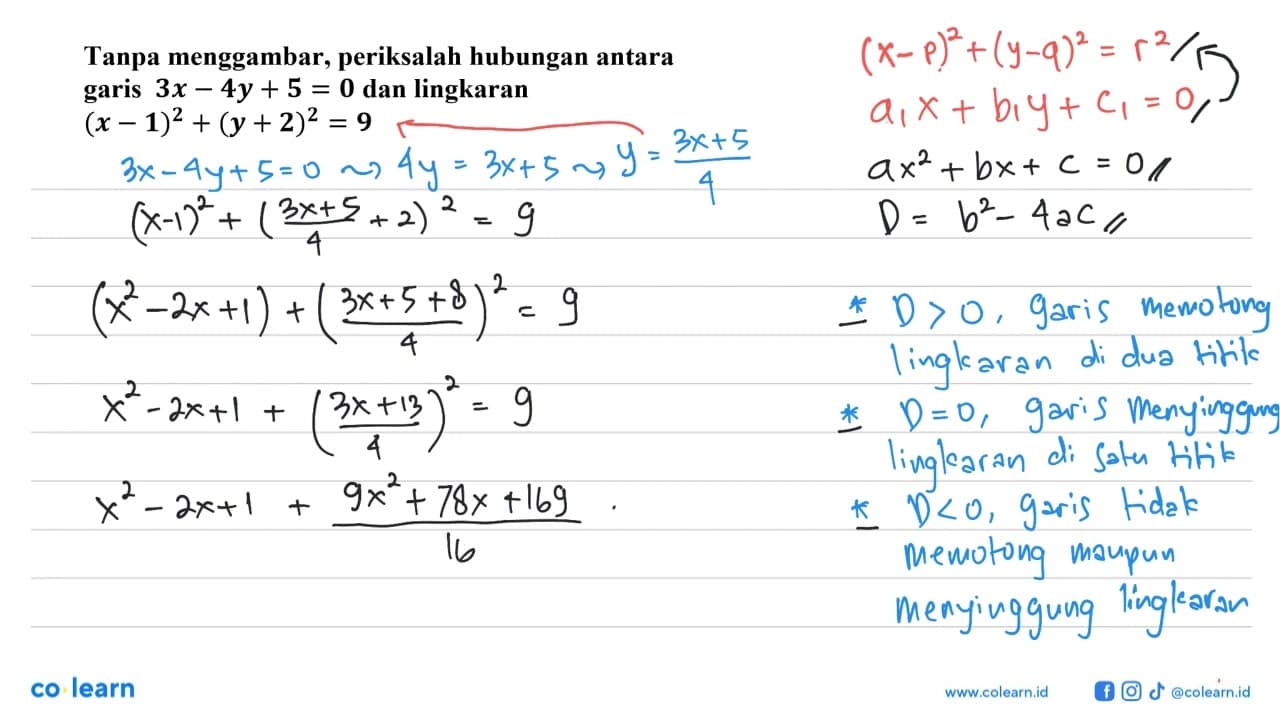 Tanpa menggambar, periksalah hubungan antara
garis 3x − 4y + 5 = 0 dan lingkaran
(x − 1)² + (y + 2)² = 9
3x − 4y + 5 = 0 ⤳ 4y = 3x + 5 ⤳ y = (3x+5)/4
(x−1)² + ((3x+5)/4 + 2)² = 9
(x² − 2x + 1) + ((3x+5+8)/4)² = 9
x² − 2x + 1 + ((3x+13)/4)² = 9
x² − 2x + 1 + (9x² + 78x + 169)/16 .
(x−p)² + (y−q)² = r²
a₁x + b₁y + c₁ = 0
ax² + bx + c = 0
D = b² − 4ac
* D > 0, garis memotong
lingkaran di dua titik
* D = 0, garis menyinggung
lingkaran di satu titik
* D < 0, garis tidak
memotong maupun
menyinggung lingkaran
co learn
www.colearn.id
@colearn.id